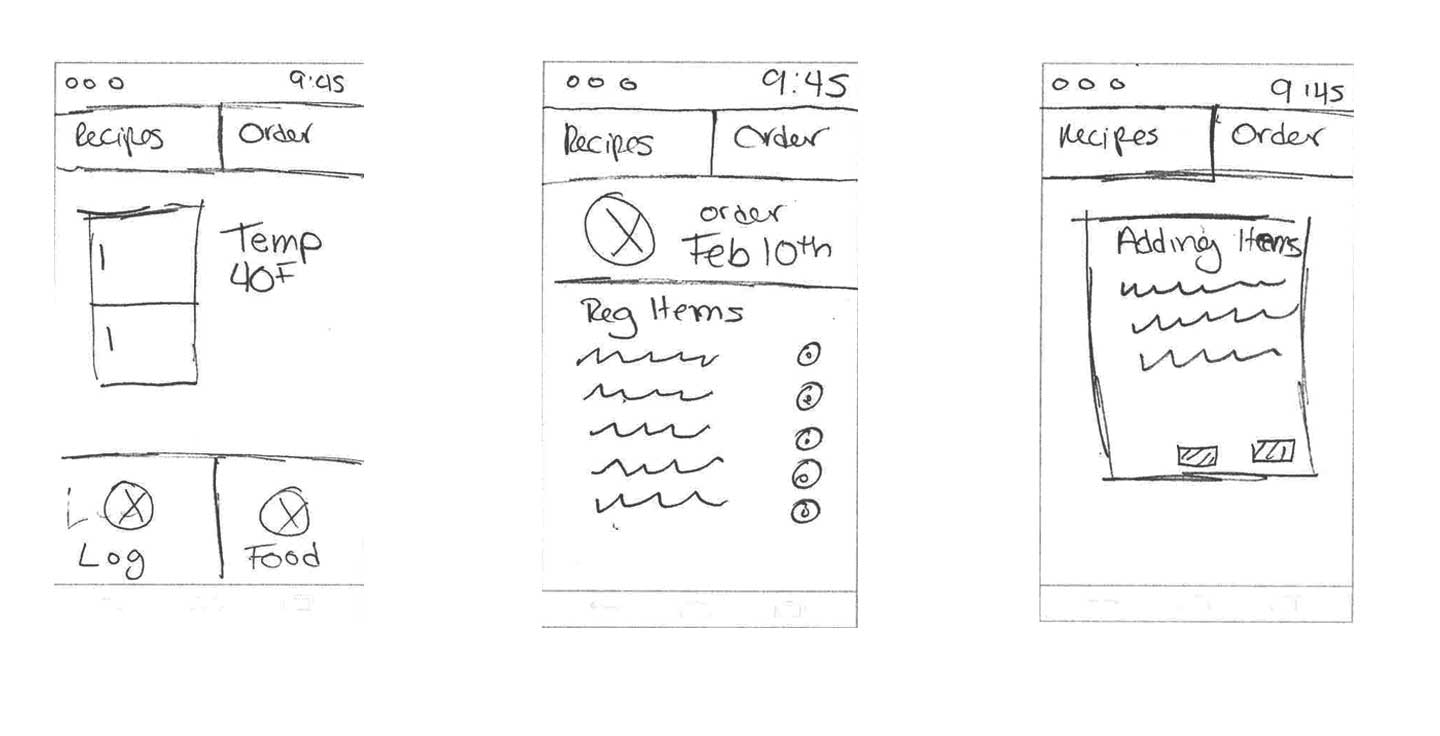 9:45
Recipes Order
Temp
40F
Log Food
9:45
Recipes Order
order
Feb 10th
Reg Items
9:45
Recipes Order
Adding Items